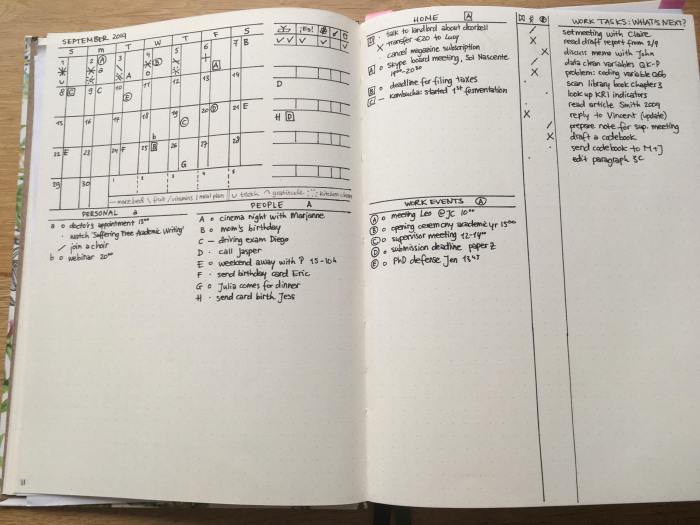 SEPTEMBER 2019
S M T W T F S
1 2 A 3 4 B 5 6 7 B
a A o A
8 C 9 C 10 11 12 13 14
E
15 16 17 18 19 20 D 21 E
C
b
22 E 23 24 F 25 B 26 27 28
G
29 30 1 2 3 4 5
D
H D
PERSONAL a
a o doctor's appointment 13⁰⁰
· watch 'Suffering Free Academic Writing'
/ join a choir
b o webinar 20⁰⁰
PEOPLE A
A o cinema night with Marjanne
B o mom's birthday
C — driving exam Diego
D · call Jasper
E o weekend away with P 15-10h
F · send birthday card Eric
G o Julia comes for dinner
H · send card birth Jess
HOME A
· talk to landlord about doorbell
X transfer €20 to Lucy
· cancel magazine subscription
A o Skype board meeting, Sol Nascente
B o deadline for filing taxes
C — kombucha: started 1st fermentation
WORK EVENTS A
A o meeting Leo @JC 10⁰⁰
B o opening ceremony academic yr 15⁰⁰
C o supervisor meeting 12-14⁰⁰
D o submission deadline paper 2
E o PhD defense Jen 13⁴⁵
WORK TASKS: WHAT'S NEXT?
/ set meeting with Claire
X read draft report from 2/9
X discuss memo with John
/ data clean variables QK-P
X problem: coding variable Q66
· scan library book Chapter 3
· look up KRI indicators
· read article Smith 2009
X reply to Vincent (update)
/ prepare note for sup. meeting
X draft a codebook
· send codebook to M+J
· edit paragraph 3C